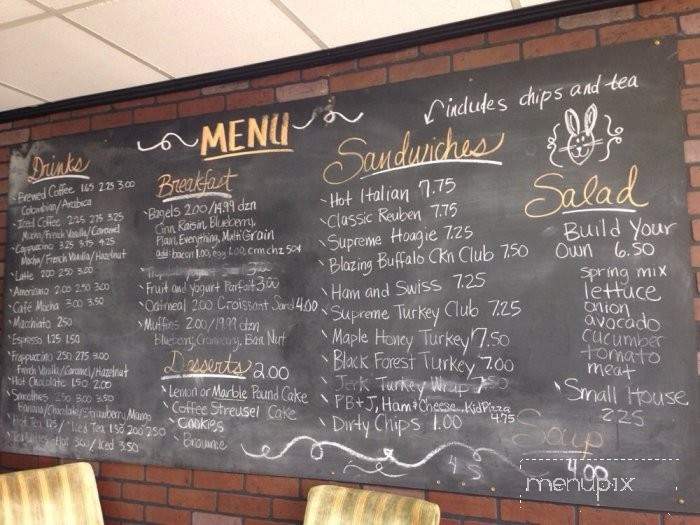 MENU
includes chips and tea
Drinks
Brewed Coffee 1.65 2.25 3.00
Colombian/Arabica
Iced Coffee 2.25 2.75 3.25
Mocha/French Vanilla/Caramel
Cappuccino 3.25 3.75 4.25
Mocha/French Vanilla/Hazelnut
Latte 2.00 2.50 3.00
Americano 2.00 2.50 3.00
Café Mocha 3.00 3.50
Macchiato 2.50
Espresso 1.25 1.50
Frappuccino 2.50 2.75 3.00
French Vanilla/Caramel/Hazelnut
Hot Chocolate 1.50 2.00
Smoothies 2.50 3.00 3.50
Banana/Chocolate/Strawberry, Mango
Hot Tea 1.25 Iced Tea 1.50 2.00 2.50
Hot 3.00/Iced 3.50
Breakfast
Bagels 2.00/14.99 dzn
Cinn Raisin, Blueberry,
Plain, Everything, Multi Grain
add: bacon 1.00, egg 1.00, crm chz 50¢
Fruit and yogurt Parfait 3.00
Oatmeal 2.00 Croissant Sand 4.00
Muffins 2.00/19.99 dzn
Blueberry, Cranberry, Ban Nut
Desserts 2.00
Lemon or Marble Pound Cake
Coffee Streusel Cake
Cookies
Brownie
Sandwiches
Hot Italian 7.75
Classic Reuben 7.75
Supreme Hoagie 7.25
Blazing Buffalo Ckn Club 7.50
Ham and Swiss 7.25
Supreme Turkey Club 7.25
Maple Honey Turkey 7.50
Black Forest Turkey 7.00
Jerk Turkey Wrap 7.50
PB+J, Ham & Cheese, Kid Pizza
4.75
Dirty Chips 1.00
Salad
Build Your
Own 6.50
spring mix
lettuce
onion
avocado
cucumber
tomato
meat
Small House
2.25
Soup
4.00
menupix